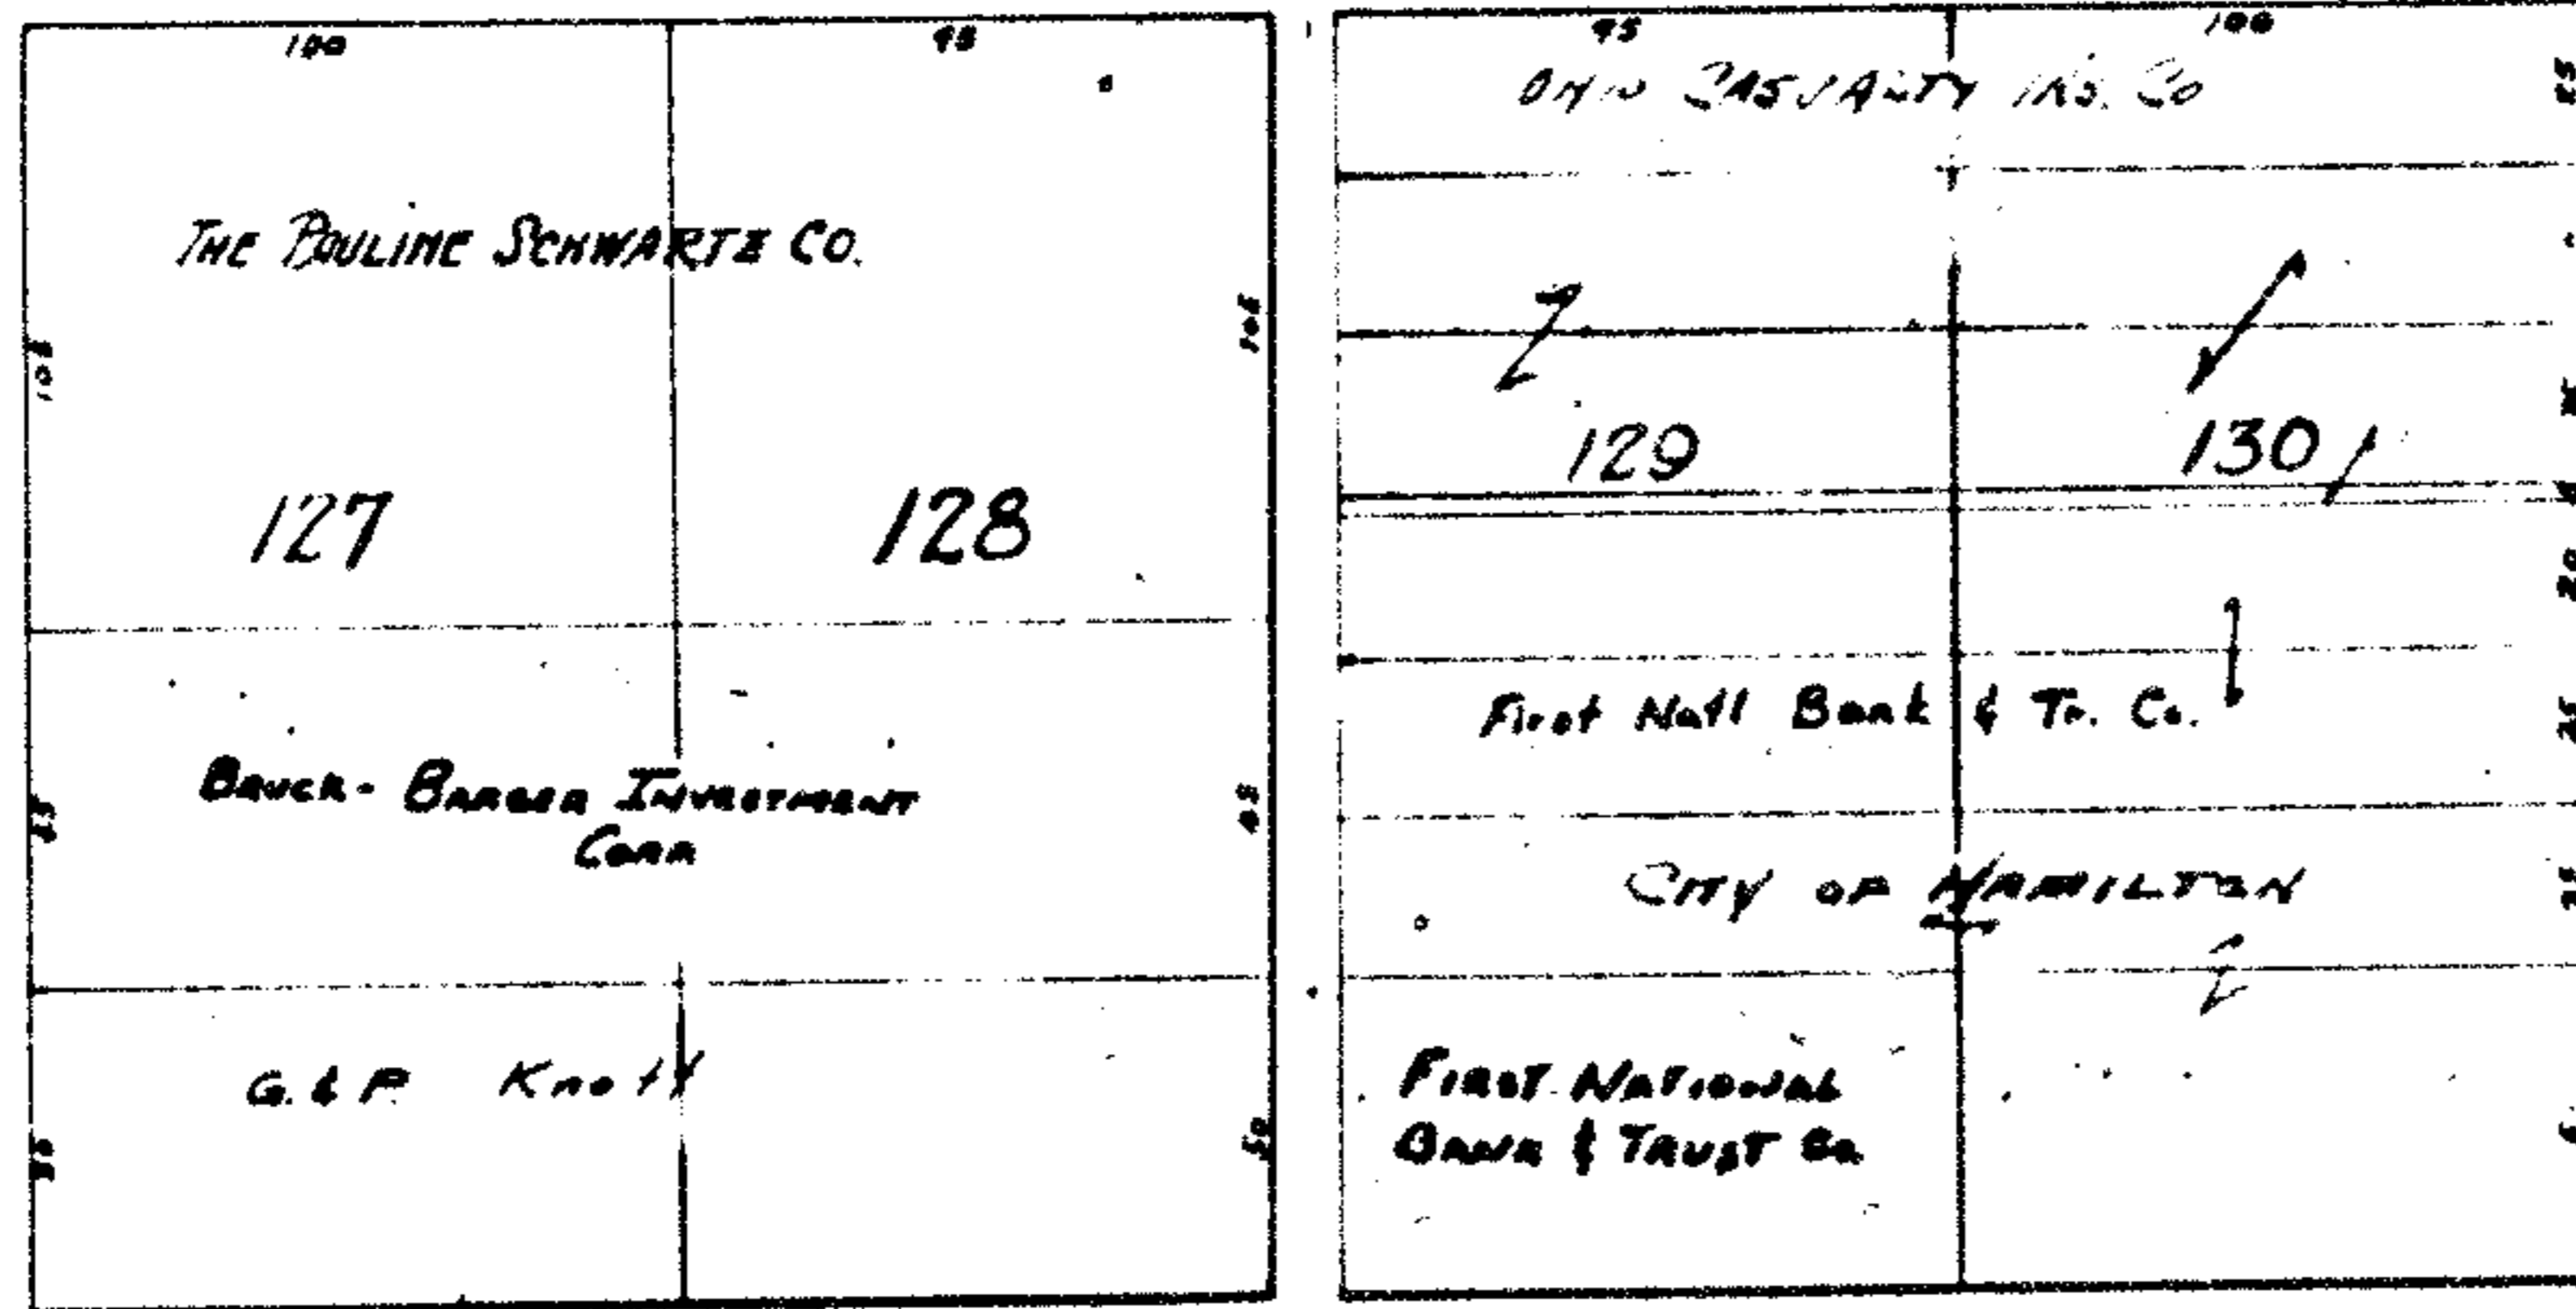 100 95
THE PAULINE SCHWARTZ CO.
105 105
127 128
BRUCK- BARGER INVESTMENT
CORP
45
G. & P. Knoll
50
95 100
OHIO CASUALTY INS. CO
129 130
20
First Natl Bank & Tr. Co.
25
CITY OF HAMILTON
25
FIRST NATIONAL
BANK & TRUST CO.